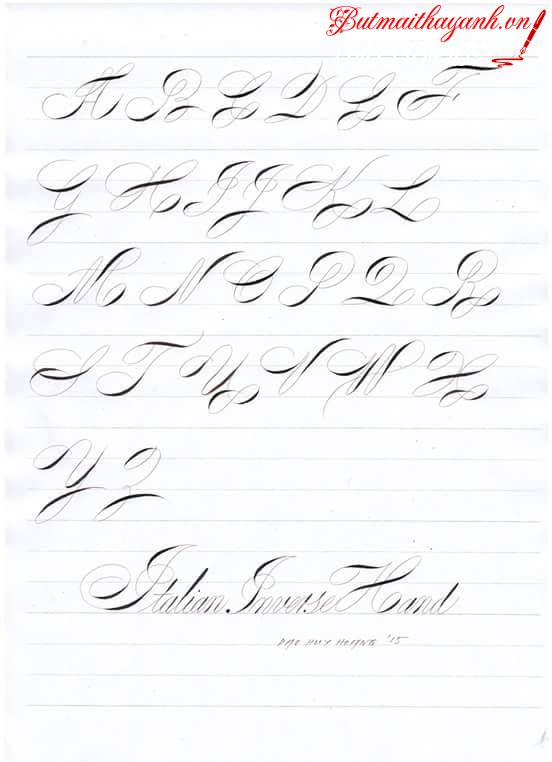 Butmaithayanh.vn
A B C D E F
G H I J K L
M N O P Q R
S T U V W X
Y Z
Italian Inverse Hand
DAO HUY HOANG '15